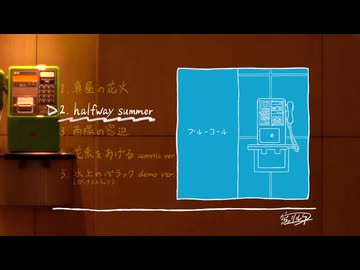 1. 真昼の花火
2. halfway summer
3. 雨隠の窓辺
4. 花束をあげる acoustic ver.
5. 水上のバラック demo ver.
(ボーナストラック)
ブルーコール